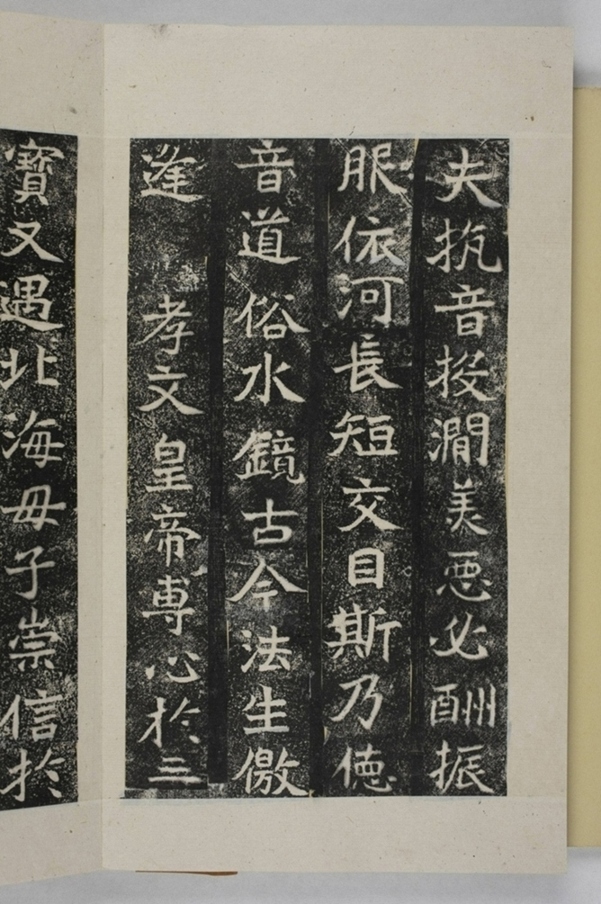 夫抗音投澗美惡必酬振
服依河長短交目斯乃德
音道俗水鏡古今法生儌
逢 孝文皇帝專心於三
寶又遇北海母子崇信於